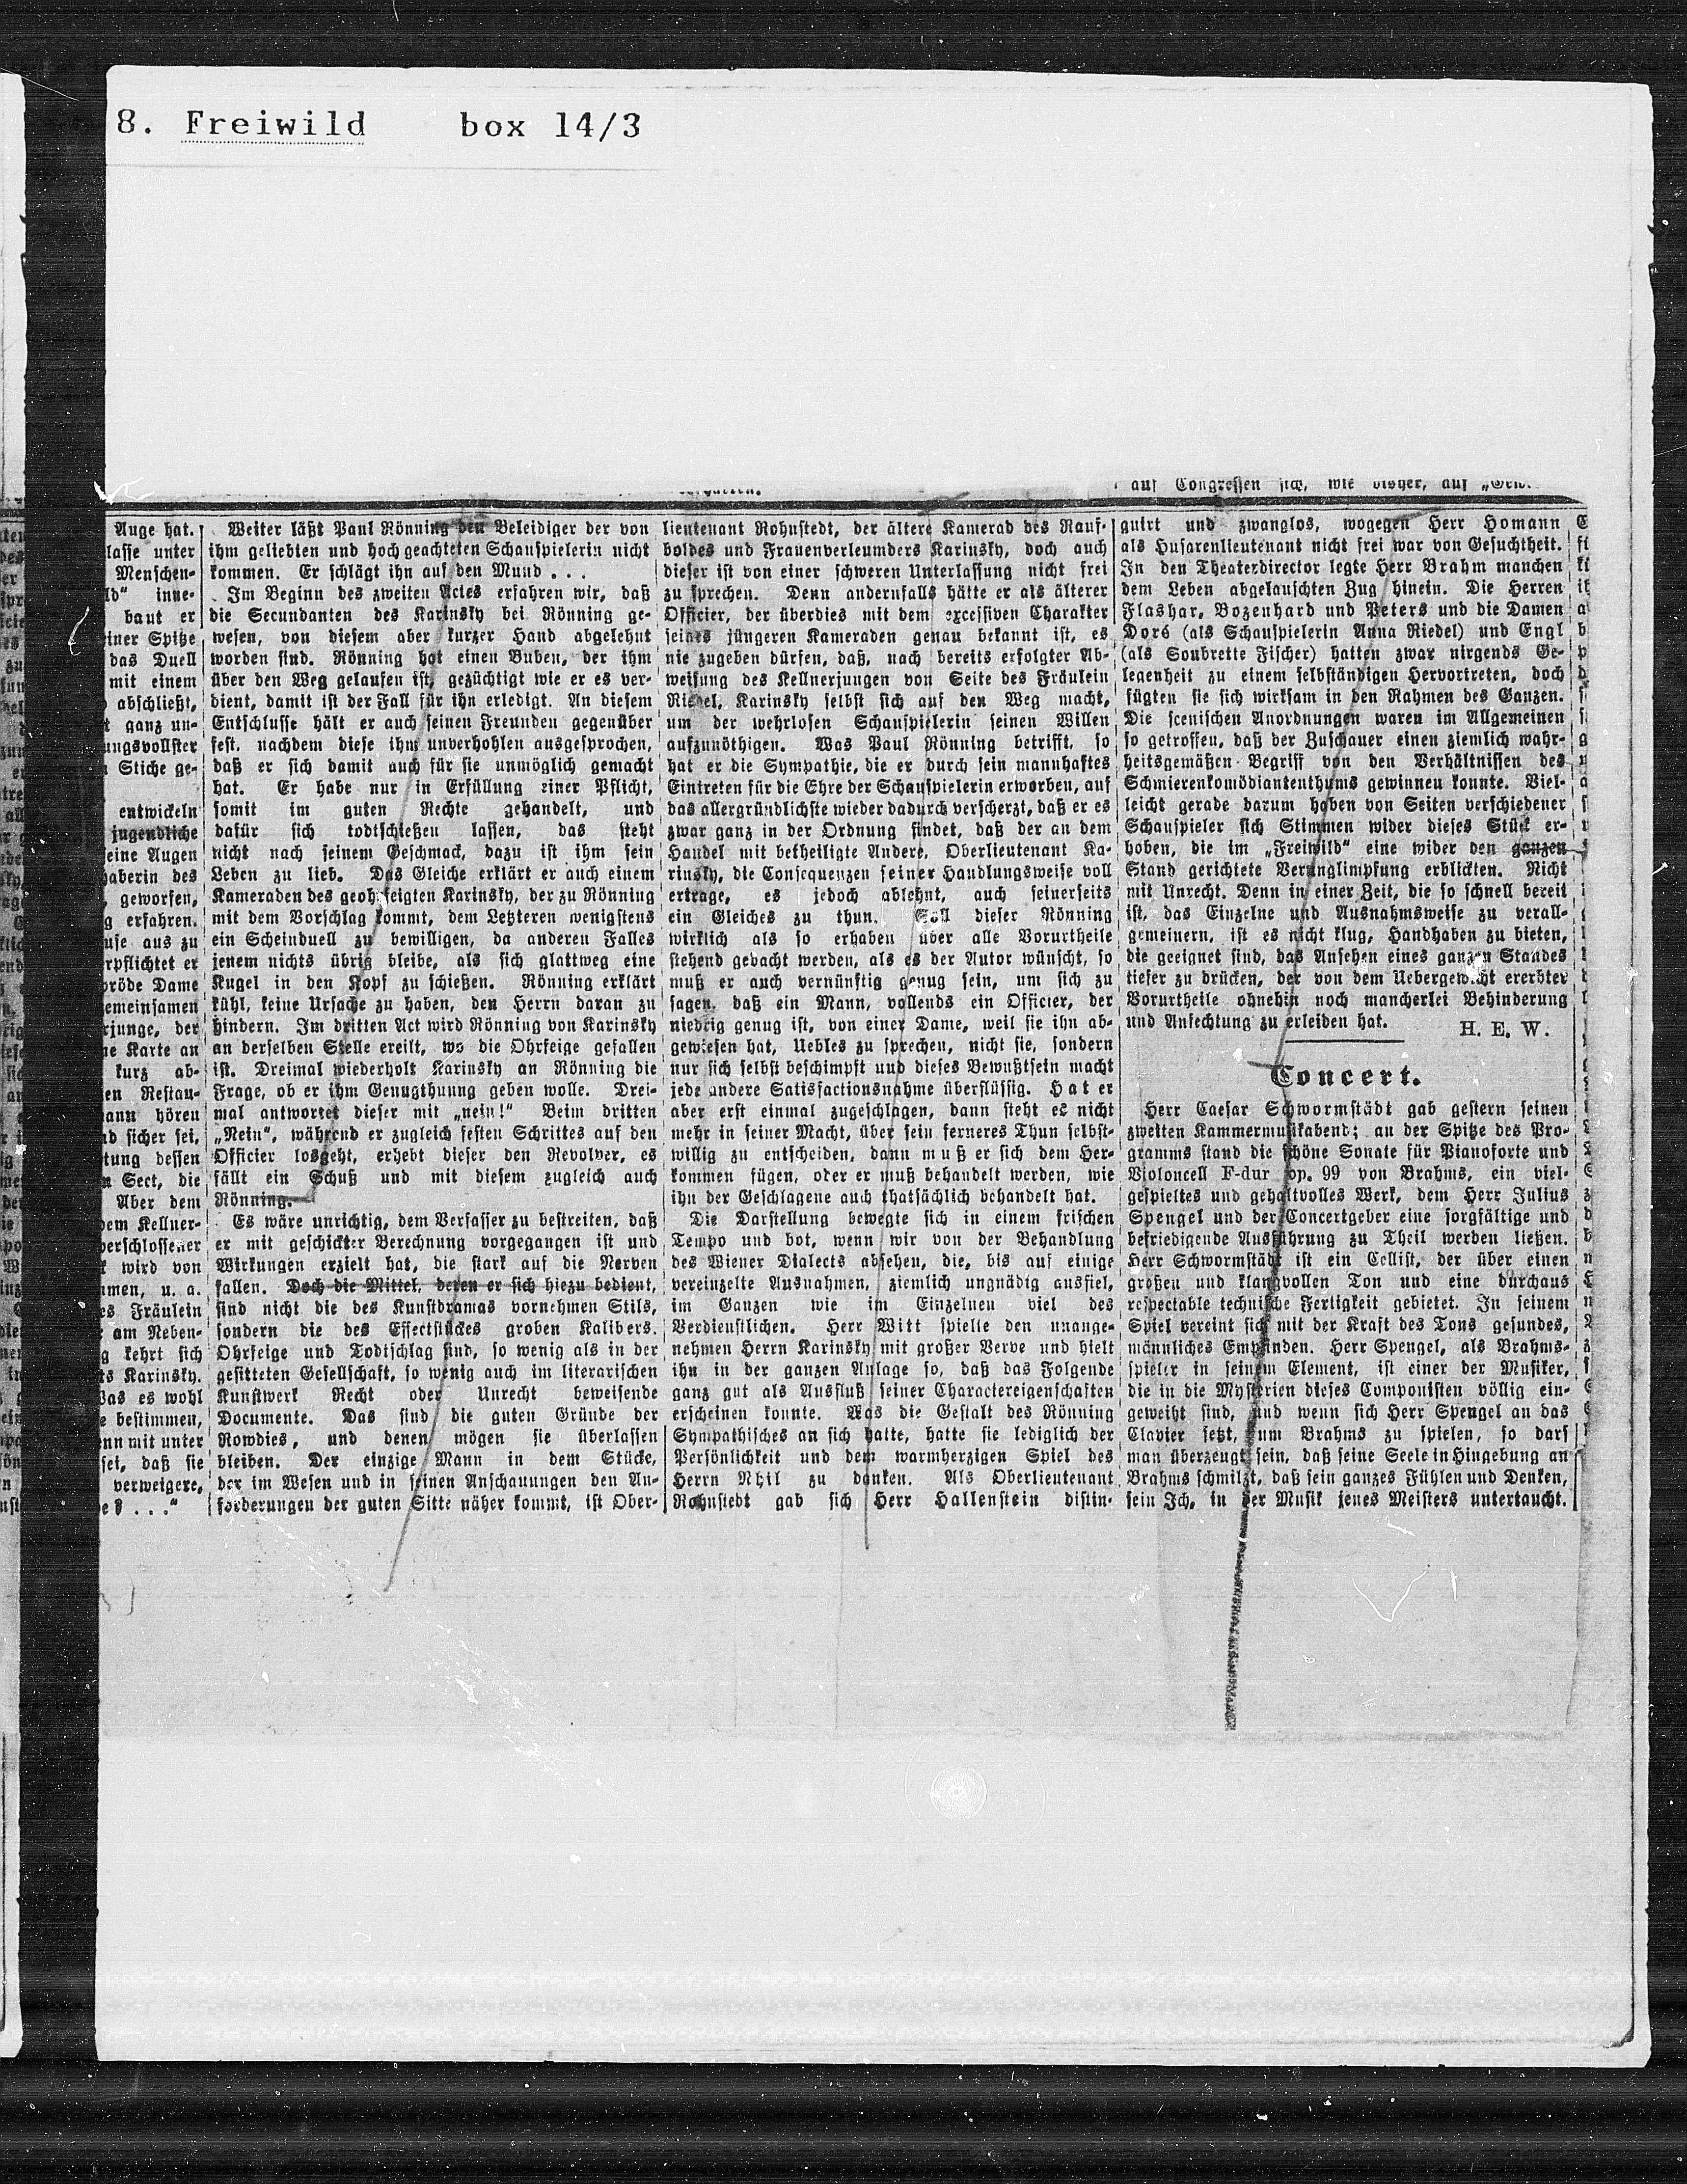 8. Freiwild box 14/3
auf Congressen sich, wie bisher, auf
Auge hat.
lasse unter
Menschen-
inne-
baut er
einer Spitze
das Duell
mit einem
abschließt,
ganz un-
ungsvollster
Stiche ge-
entwickeln
jugendliche
eine Augen
haberin des
geworfen,
erfahren.
aus zu
rpflichtet er
pröde Dame
emeinsamen
rjunge, der
ne Karte an
kurz ab-
en Restau-
ann hören
nd sicher sei,
tung dessen
Sect, die
Aber dem
dem Kellner-
verschlossener
wird von
men, u. a.
es Fräulein
am Neben-
g kehrt sich
ts Karinsky.
Was es wohl
bestimmen,
enn mit unter
sei, daß sie
verweigere,
e? . . ."
Weiter läßt Paul Rönning den Beleidiger der von
ihm geliebten und hoch geachteten Schauspielerin nicht
kommen. Er schlägt ihn auf den Mund . . .
Im Beginn des zweiten Actes erfahren wir, daß
die Secundanten des Karinsky bei Rönning ge-
wesen, von diesem aber kurzer Hand abgelehnt
worden sind. Rönning hat einen Buben, der ihm
über den Weg gelaufen ist, gezüchtigt wie er es ver-
dient, damit ist der Fall für ihn erledigt. An diesem
Entschlusse hält er auch seinen Freunden gegenüber
fest, nachdem diese ihm unverhohlen ausgesprochen,
daß er sich damit auch für sie unmöglich gemacht
hat. Er habe nur in Erfüllung einer Pflicht,
somit im guten Rechte gehandelt, und
dafür sich todtschießen lassen, das steht
nicht nach seinem Geschmack, dazu ist ihm sein
Leben zu lieb. Das Gleiche erklärt er auch einem
Kameraden des geohrfeigten Karinsky, der zu Rönning
mit dem Vorschlag kommt, dem Letzteren wenigstens
ein Scheinduell zu bewilligen, da anderen Falles
jenem nichts übrig bleibe, als sich glattweg eine
Kugel in den Kopf zu schießen. Rönning erklärt
kühl, keine Ursache zu haben, den Herrn daran zu
hindern. Im dritten Act wird Rönning von Karinsky
an derselben Stelle ereilt, wo die Ohrfeige gefallen
ist. Dreimal wiederholt Karinsky an Rönning die
Frage, ob er ihm Genugthuung geben wolle. Drei-
mal antwortet dieser mit „nein!“ Beim dritten
„Nein“, während er zugleich festen Schrittes auf den
Officier losgeht, erhebt dieser den Revolver, es
fällt ein Schuß und mit diesem zugleich auch
Rönning.
Es wäre unrichtig, dem Verfasser zu bestreiten, daß
er mit geschickter Berechnung vorgegangen ist und
Wirkungen erzielt hat, die stark auf die Nerven
fallen. Doch die Mittel, deren er sich hiezu bedient,
sind nicht die des Kunstdramas vornehmen Stils,
sondern die des Effectstückes groben Kalibers.
Ohrfeige und Todtschlag sind, so wenig als in der
gesitteten Gesellschaft, so wenig auch im literarischen
Kunstwerk Recht oder Unrecht beweisende
Documente. Das sind die guten Gründe der
Rowdies, und denen mögen sie überlassen
bleiben. Der einzige Mann in dem Stücke,
der im Wesen und in seinen Anschauungen den An-
forderungen der guten Sitte näher kommt, ist Ober-
lieutenant Rohnstedt, der ältere Kamerad des Rauf-
boldes und Frauenverleumders Karinsky, doch auch
dieser ist von einer schweren Unterlassung nicht frei
zu sprechen. Denn andernfalls hätte er als älterer
Officier, der überdies mit dem excessiven Charakter
seines jüngeren Kameraden genau bekannt ist, es
nie zugeben dürfen, daß, nach bereits erfolgter Ab-
weisung des Kellnerjungen von Seite des Fräulein
Riedel, Karinsky selbst sich auf den Weg macht,
um der wehrlosen Schauspielerin seinen Willen
aufzunöthigen. Was Paul Rönning betrifft, so
hat er die Sympathie, die er durch sein mannhaftes
Eintreten für die Ehre der Schauspielerin erworben, auf
das allergründlichste wieder dadurch verscherzt, daß er es
zwar ganz in der Ordnung findet, daß der an dem
Handel mit betheiligte Andere, Oberlieutenant Ka-
rinsky, die Consequenzen seiner Handlungsweise voll
ertrage, es jedoch ablehnt, auch seinerseits
ein Gleiches zu thun. Soll dieser Rönning
wirklich als so erhaben über alle Vorurtheile
stehend gedacht werden, als es der Autor wünscht, so
muß er auch vernünftig genug sein, um sich zu
sagen, daß ein Mann, vollends ein Officier, der
niedrig genug ist, von einer Dame, weil sie ihn ab-
gewiesen hat, Uebles zu sprechen, nicht sie, sondern
nur sich selbst beschimpft und dieses Bewußtsein macht
jede andere Satisfactionsnahme überflüssig. Hat er
aber erst einmal zugeschlagen, dann steht es nicht
mehr in seiner Macht, über sein ferneres Thun selbst-
willig zu entscheiden, dann muß er sich dem Her-
kommen fügen, oder er muß behandelt werden, wie
ihn der Geschlagene auch thatsächlich behandelt hat.
Die Darstellung bewegte sich in einem frischen
Tempo und bot, wenn wir von der Behandlung
des Wiener Dialects absehen, die, bis auf einige
vereinzelte Ausnahmen, ziemlich ungnädig ausfiel,
im Ganzen wie im Einzelnen viel des
Verdienstlichen. Herr Witt spielte den unange-
nehmen Herrn Karinsky mit großer Verve und hielt
ihn in der ganzen Anlage so, daß das Folgende
ganz gut als Ausfluß seiner Charactereigenschaften
erscheinen konnte. Was die Gestalt des Rönning
Sympathisches an sich hatte, hatte sie lediglich der
Persönlichkeit und dem warmherzigen Spiel des
Herrn Nhil zu danken. Als Oberlieutenant
Rohnstedt gab sich Herr Hallenstein distin-
guirt und zwanglos, wogegen Herr Homann
als Husarenlieutenant nicht frei war von Gesuchtheit.
In den Theaterdirector legte Herr Brahm manchen
dem Leben abgelauschten Zug hinein. Die Herren
Flashar, Bozenhard und Peters und die Damen
Doré (als Schauspielerin Anna Riedel) und Engl
(als Soubrette Fischer) hatten zwar nirgends Ge-
legenheit zu einem selbständigen Hervortreten, doch
fügten sie sich wirksam in den Rahmen des Ganzen.
Die scenischen Anordnungen waren im Allgemeinen
so getroffen, daß der Zuschauer einen ziemlich wahr-
heitsgemäßen Begriff von den Verhältnissen des
Schmierenkomödiantenthums gewinnen konnte. Viel-
leicht gerade darum haben von Seiten verschiedener
Schauspieler sich Stimmen wider dieses Stück er-
hoben, die im „Freiwild“ eine wider den ganzen
Stand gerichtete Verunglimpfung erblickten. Nicht
mit Unrecht. Denn in einer Zeit, die so schnell bereit
ist, das Einzelne und Ausnahmsweise zu verall-
gemeinern, ist es nicht klug, Handhaben zu bieten,
die geeignet sind, das Ansehen eines ganzen Standes
tiefer zu drücken, der von dem Uebergewicht ererbter
Vorurtheile ohnehin noch mancherlei Behinderung
und Anfechtung zu erleiden hat. H. E. W.
Concert.
Herr Caesar Schwormstädt gab gestern seinen
zweiten Kammermusikabend; an der Spitze des Pro-
gramms stand die schöne Sonate für Pianoforte und
Violoncell F-dur op. 99 von Brahms, ein viel-
gespieltes und gehaltvolles Werk, dem Herr Julius
Spengel und der Concertgeber eine sorgfältige und
befriedigende Ausführung zu Theil werden ließen.
Herr Schwormstädt ist ein Cellist, der über einen
großen und klangvollen Ton und eine durchaus
respectable technische Fertigkeit gebietet. In seinem
Spiel vereint sich mit der Kraft des Tons gesundes,
männliches Empfinden. Herr Spengel, als Brahms-
spieler in seinem Element, ist einer der Musiker,
die in die Mysterien dieses Componisten völlig ein-
geweiht sind, und wenn sich Herr Spengel an das
Clavier setzt, um Brahms zu spielen, so darf
man überzeugt sein, daß seine Seele in Hingebung an
Brahms schmilzt, daß sein ganzes Fühlen und Denken,
sein Ich, in der Musik jenes Meisters untertaucht.